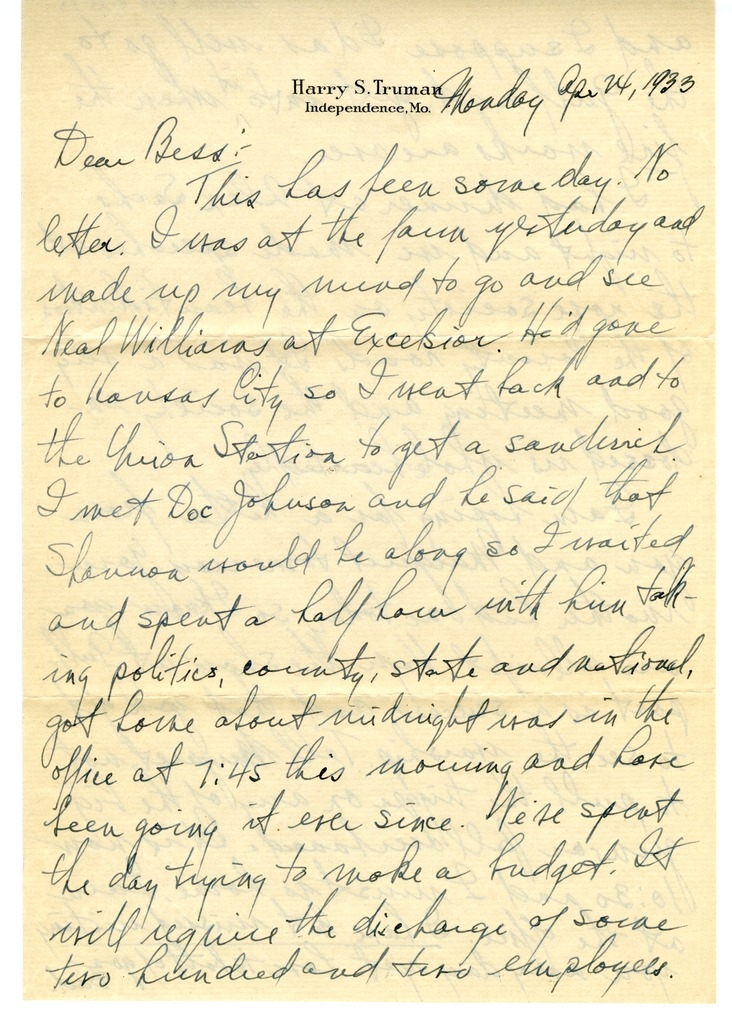 Harry S. Truman
Independence, Mo.
Monday Apr 24, 1933
Dear Bess:-
This has been some day. No
letter. I was at the farm yesterday and
made up my mind to go and see
Neal Williams at Excelsior. He'd gone
to Kansas City so I went back and to
the Union Station to get a sandwich.
I met Doc Johnson and he said that
Shannon would be along so I waited
and spent a half hour with him talk-
ing politics, county, state and national,
got home about midnight was in the
office at 7:45 this morning and have
been going it ever since. We've spent
the day trying to make a budget. It
will require the discharge of some
two hundred and two employees.